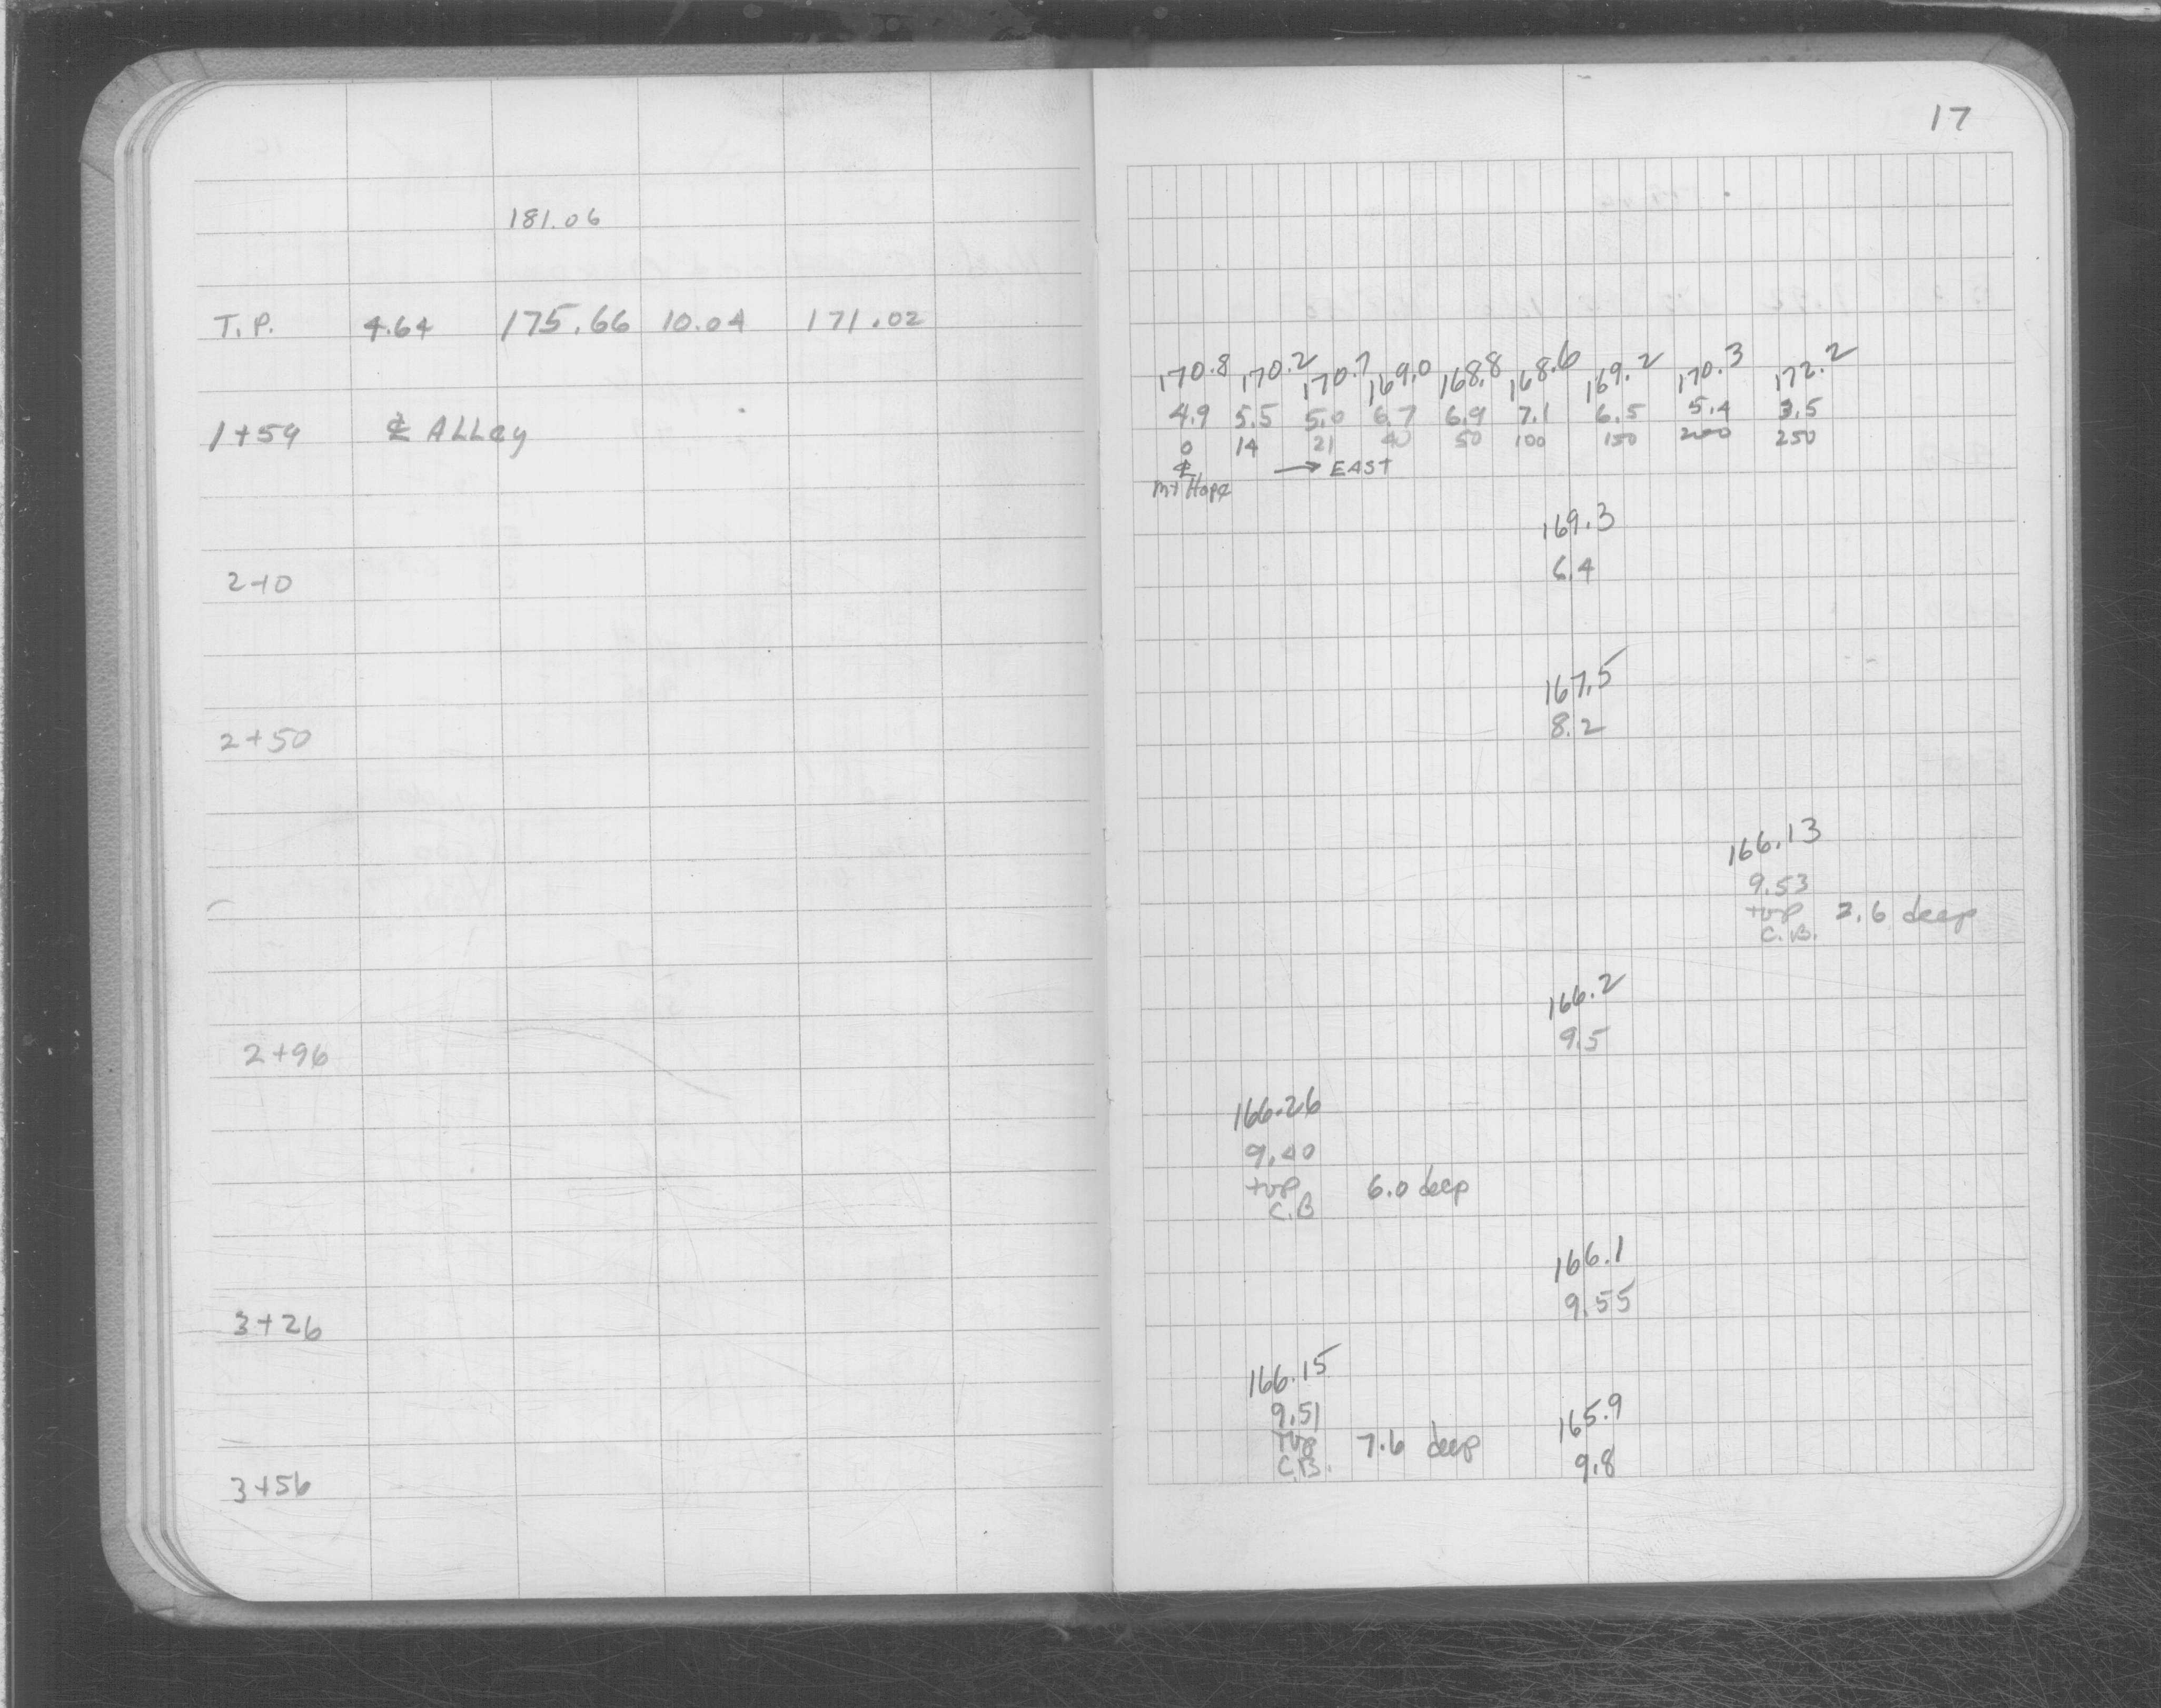 17
181.06
T.P. 4.64 175.66 10.04 171.02
170.8 170.2 170.7 169.0 168.8 168.6 169.2 170.3 172.2
4.9 5.5 5.0 6.7 6.9 7.1 6.5 5.4 3.5
1+59 ℄ ALLey
0 14 21 40 50 100 150 200 250
℄ → EAST
Mt Hope
169.3
6.4
2+0
167.5
8.2
2+50
166.13
9.53
top 2.6 deep
C.B.
166.2
9.5
2+96
166.26
9.40
top 6.0 deep
C.B
166.1
9.55
3+26
166.15
9.51 165.9
top 7.6 deep
C.B. 9.8
3+56